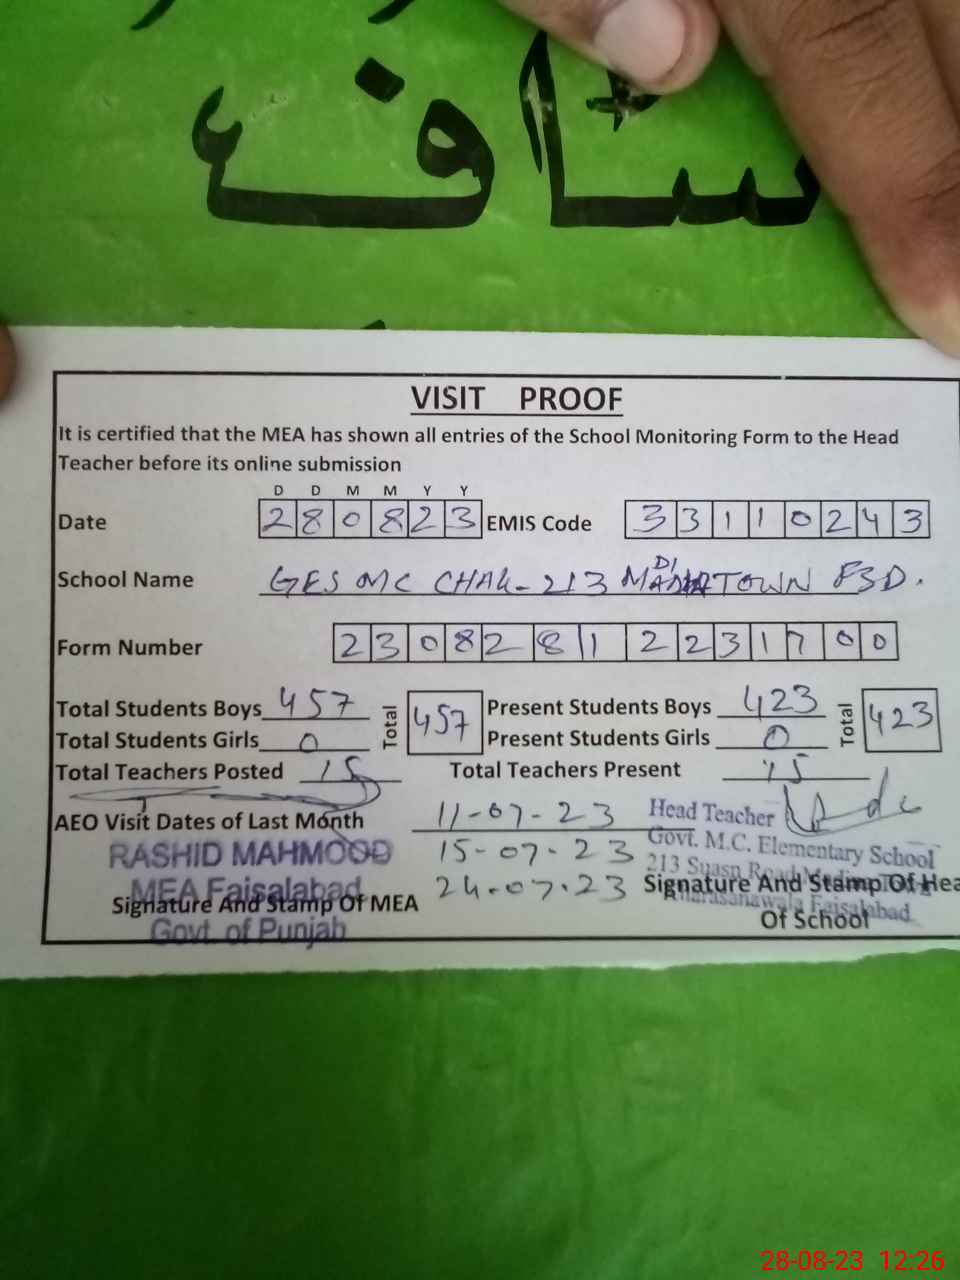 ساف
VISIT PROOF
It is certified that the MEA has shown all entries of the School Monitoring Form to the Head
Teacher before its online submission
D D M M Y Y
Date 2 8 0 8 2 3 EMIS Code 3 3 1 1 0 2 4 3
School Name GES MC CHAK-213 TOWN FSD.
Form Number 2 3 0 8 2 8 1 2 2 3 1 7 0 0
Total Students Boys 457 Total 457 Present Students Boys 423 Total 423
Total Students Girls 0 Present Students Girls 0
Total Teachers Posted 15 Total Teachers Present 15
AEO Visit Dates of Last Month 11-07-23 Head Teacher
RASHID MAHMOOD 15-07-23 Govt. M.C. Elementary School
MEA Faisalabad 24-07-23 213 Road
Signature And Stamp Of MEA Signature And Stamp Of Hea
Faisalabad
Govt. of Punjab Of School
28-08-23 12:26